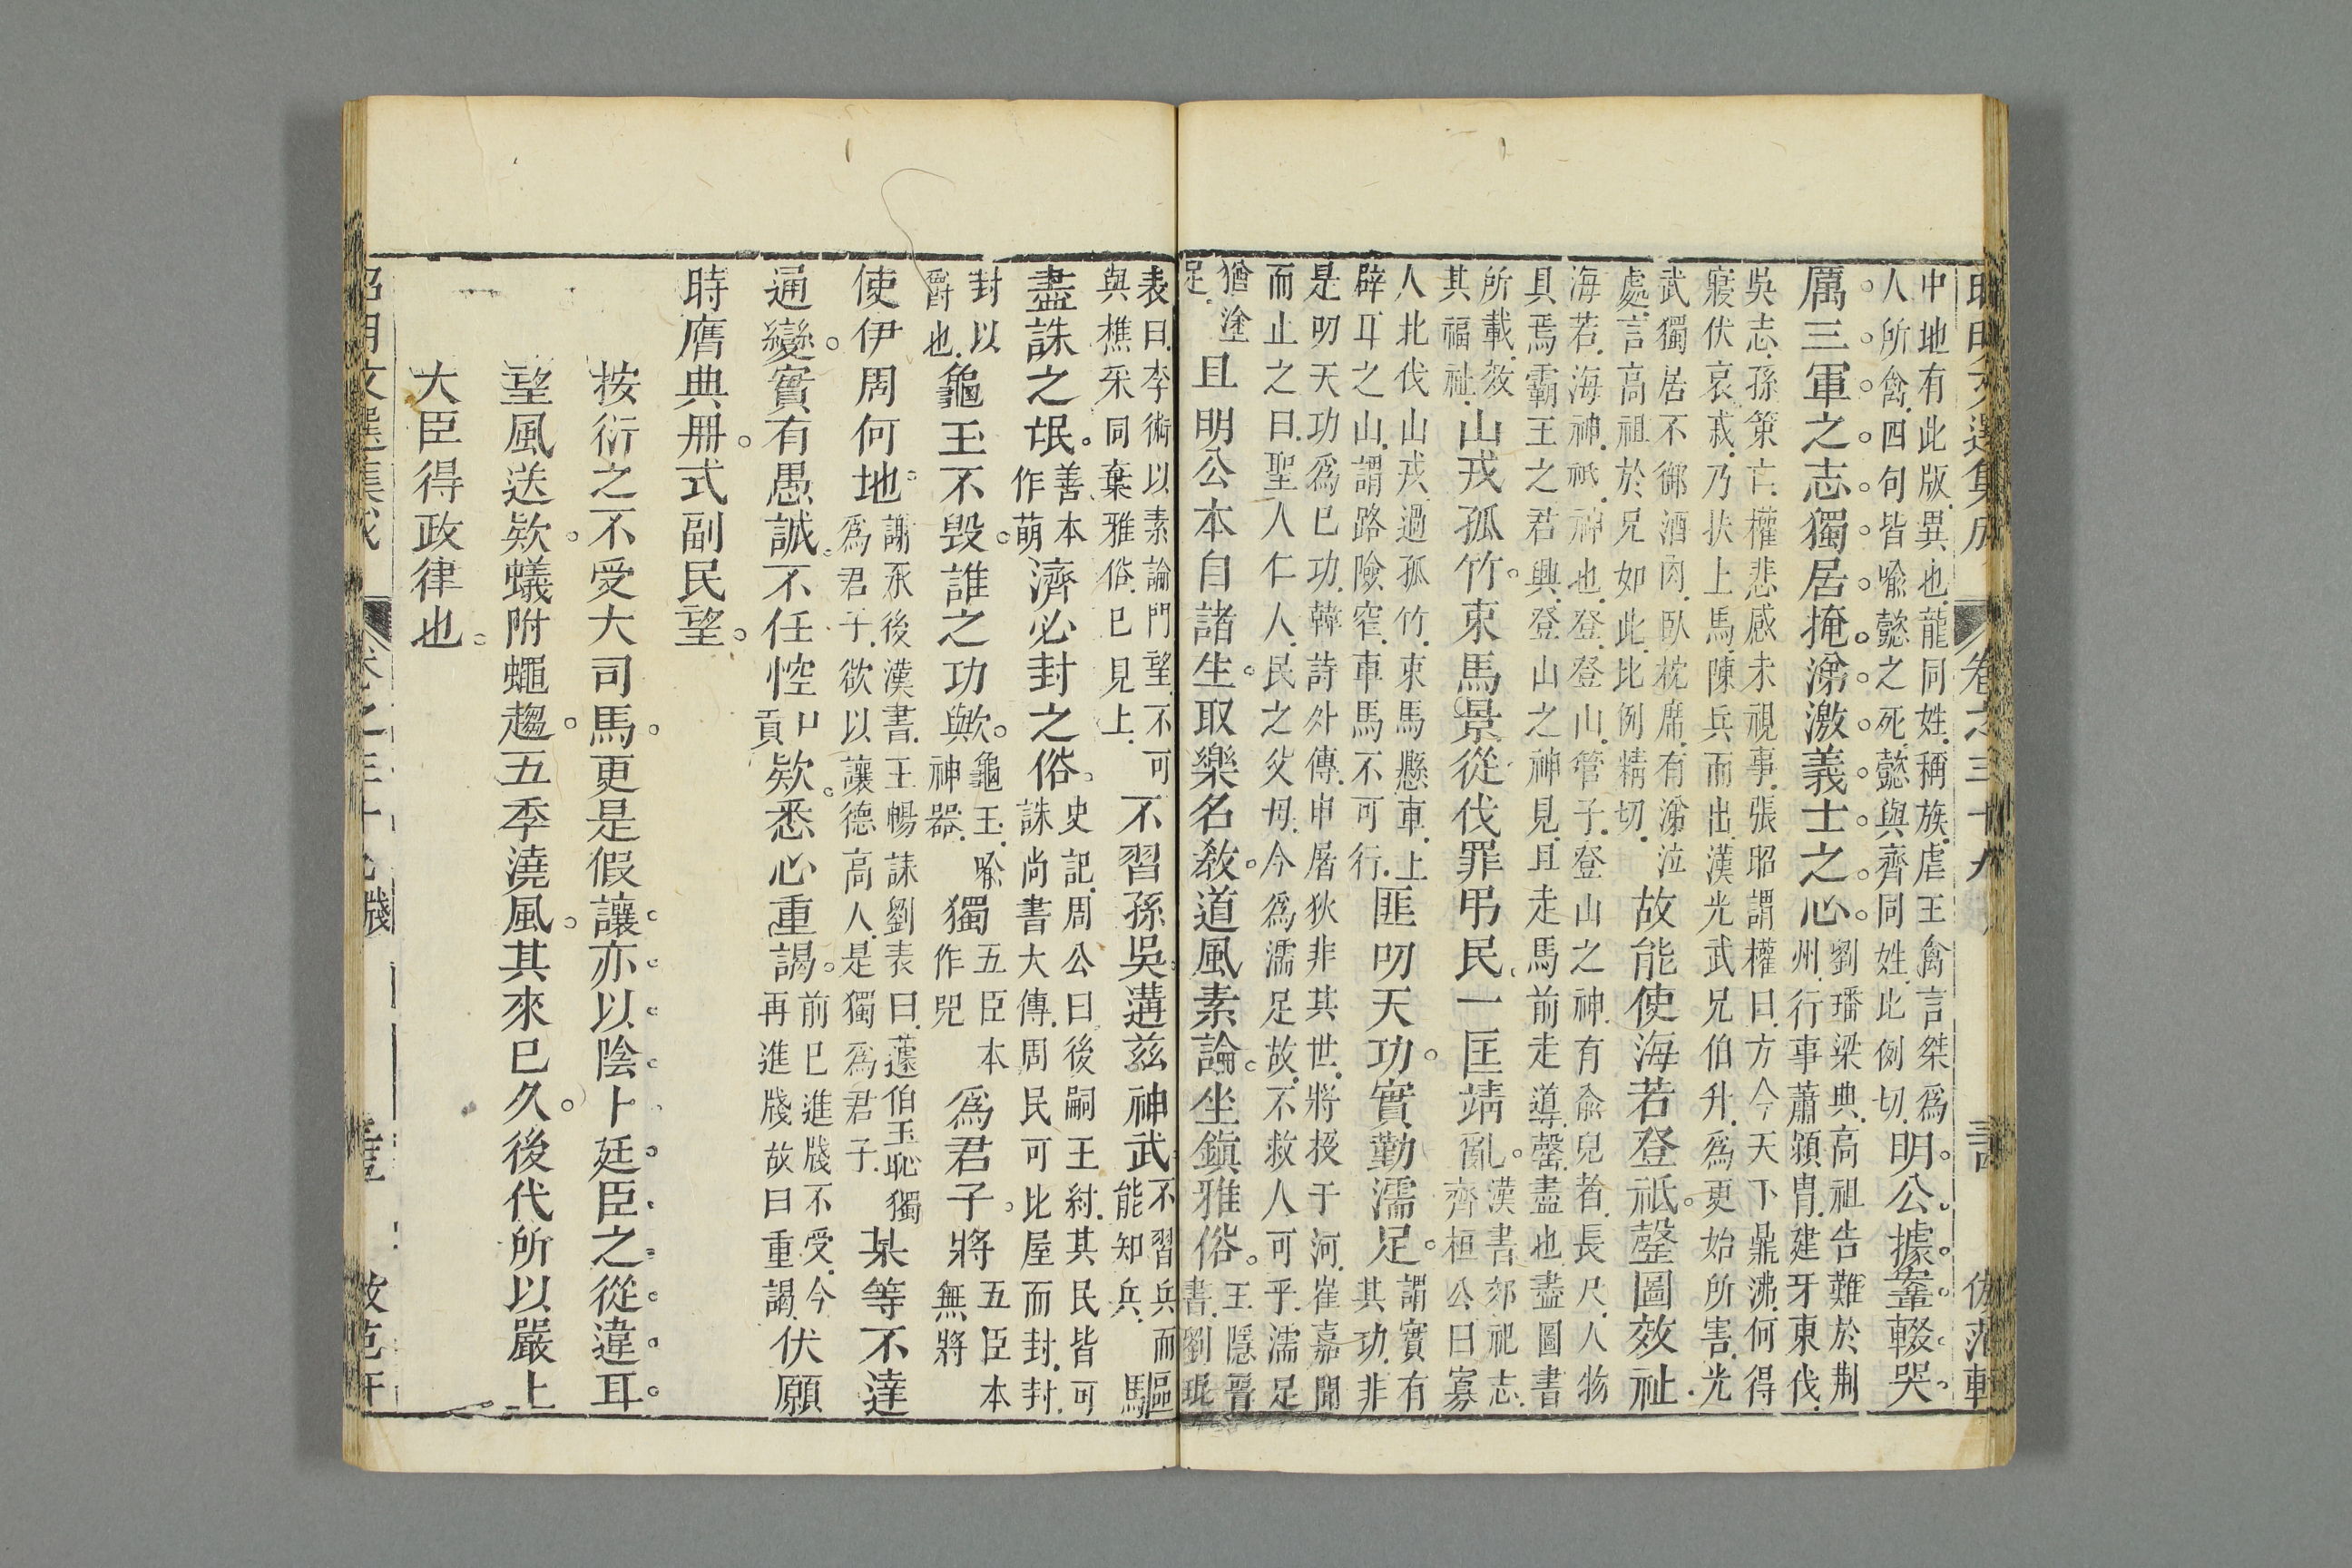 昭明文選集成 卷之三十九 倣范軒
中地有此版異也龍同姓稱族虐王禽言桀爲
人所禽四句皆喩懿之死懿與齊同姓此例切明公據鞌輟哭
厲三軍之志獨居掩涕激義士之心劉璠梁典高祖告難於荆
州行事蕭穎冑建牙東伐
吳志孫策亡權悲感未視事張昭謂權曰方今天下鼎沸何得
寢伏哀戚乃扶上馬陳兵而出漢光武兄伯升爲更始所害光
武獨居不御酒肉臥枕席有涕泣
處言高祖於兄如此比例精切故能使海若登祇罄圖效祉
海若海神祇神也登登山管子登山之神有兪兒者長尺人物
具焉霸王之君興登山之神見且走馬前走導罄盡也盡圖書
所載效
其福祉山戎孤竹束馬景從伐罪弔民一匡靖亂漢書郊祀志
齊桓公曰寡
人北伐山戎過孤竹束馬懸車上
辟耳之山謂路險窄車馬不可行匪叨天功實勤濡足謂實有
其功非
是叨天功爲已功韓詩外傳申屠狄非其世將投于河崔嘉聞
而止之曰聖人仁人民之父母今爲濡足故不救人可乎濡足
猶塗
足且明公本自諸生取樂名敎道風素論坐鎭雅俗王隱晉
書劉琨
表曰李術以素論門望不可
與樵采同棄雅俗已見上不習孫吳遘茲神武不習兵而
能知兵驅馬
盡誅之氓善本
作萌濟必封之俗史記周公曰後嗣王紂其民皆可
誅尚書大傳周民可比屋而封封
封以
爵也龜玉不毁誰之功歟龜玉喩
神器獨五臣本
作兕爲君子將五臣本
無將
使伊周何地謝承後漢書王暢誄劉表曰蘧伯玉恥獨
爲君子欲以讓德高人是獨爲君子某等不達
通變實有愚誠不任悾款悉心重謁前已進牋不受今
再進牋故曰重謁伏願
時膺典册式副民望
按衍之不受大司馬更是假讓亦以陰卜廷臣之從違耳
望風送欵蟻附蠅趨五季澆風其來已久後代所以嚴上
大臣得政律也
昭明文選集成 倣范軒